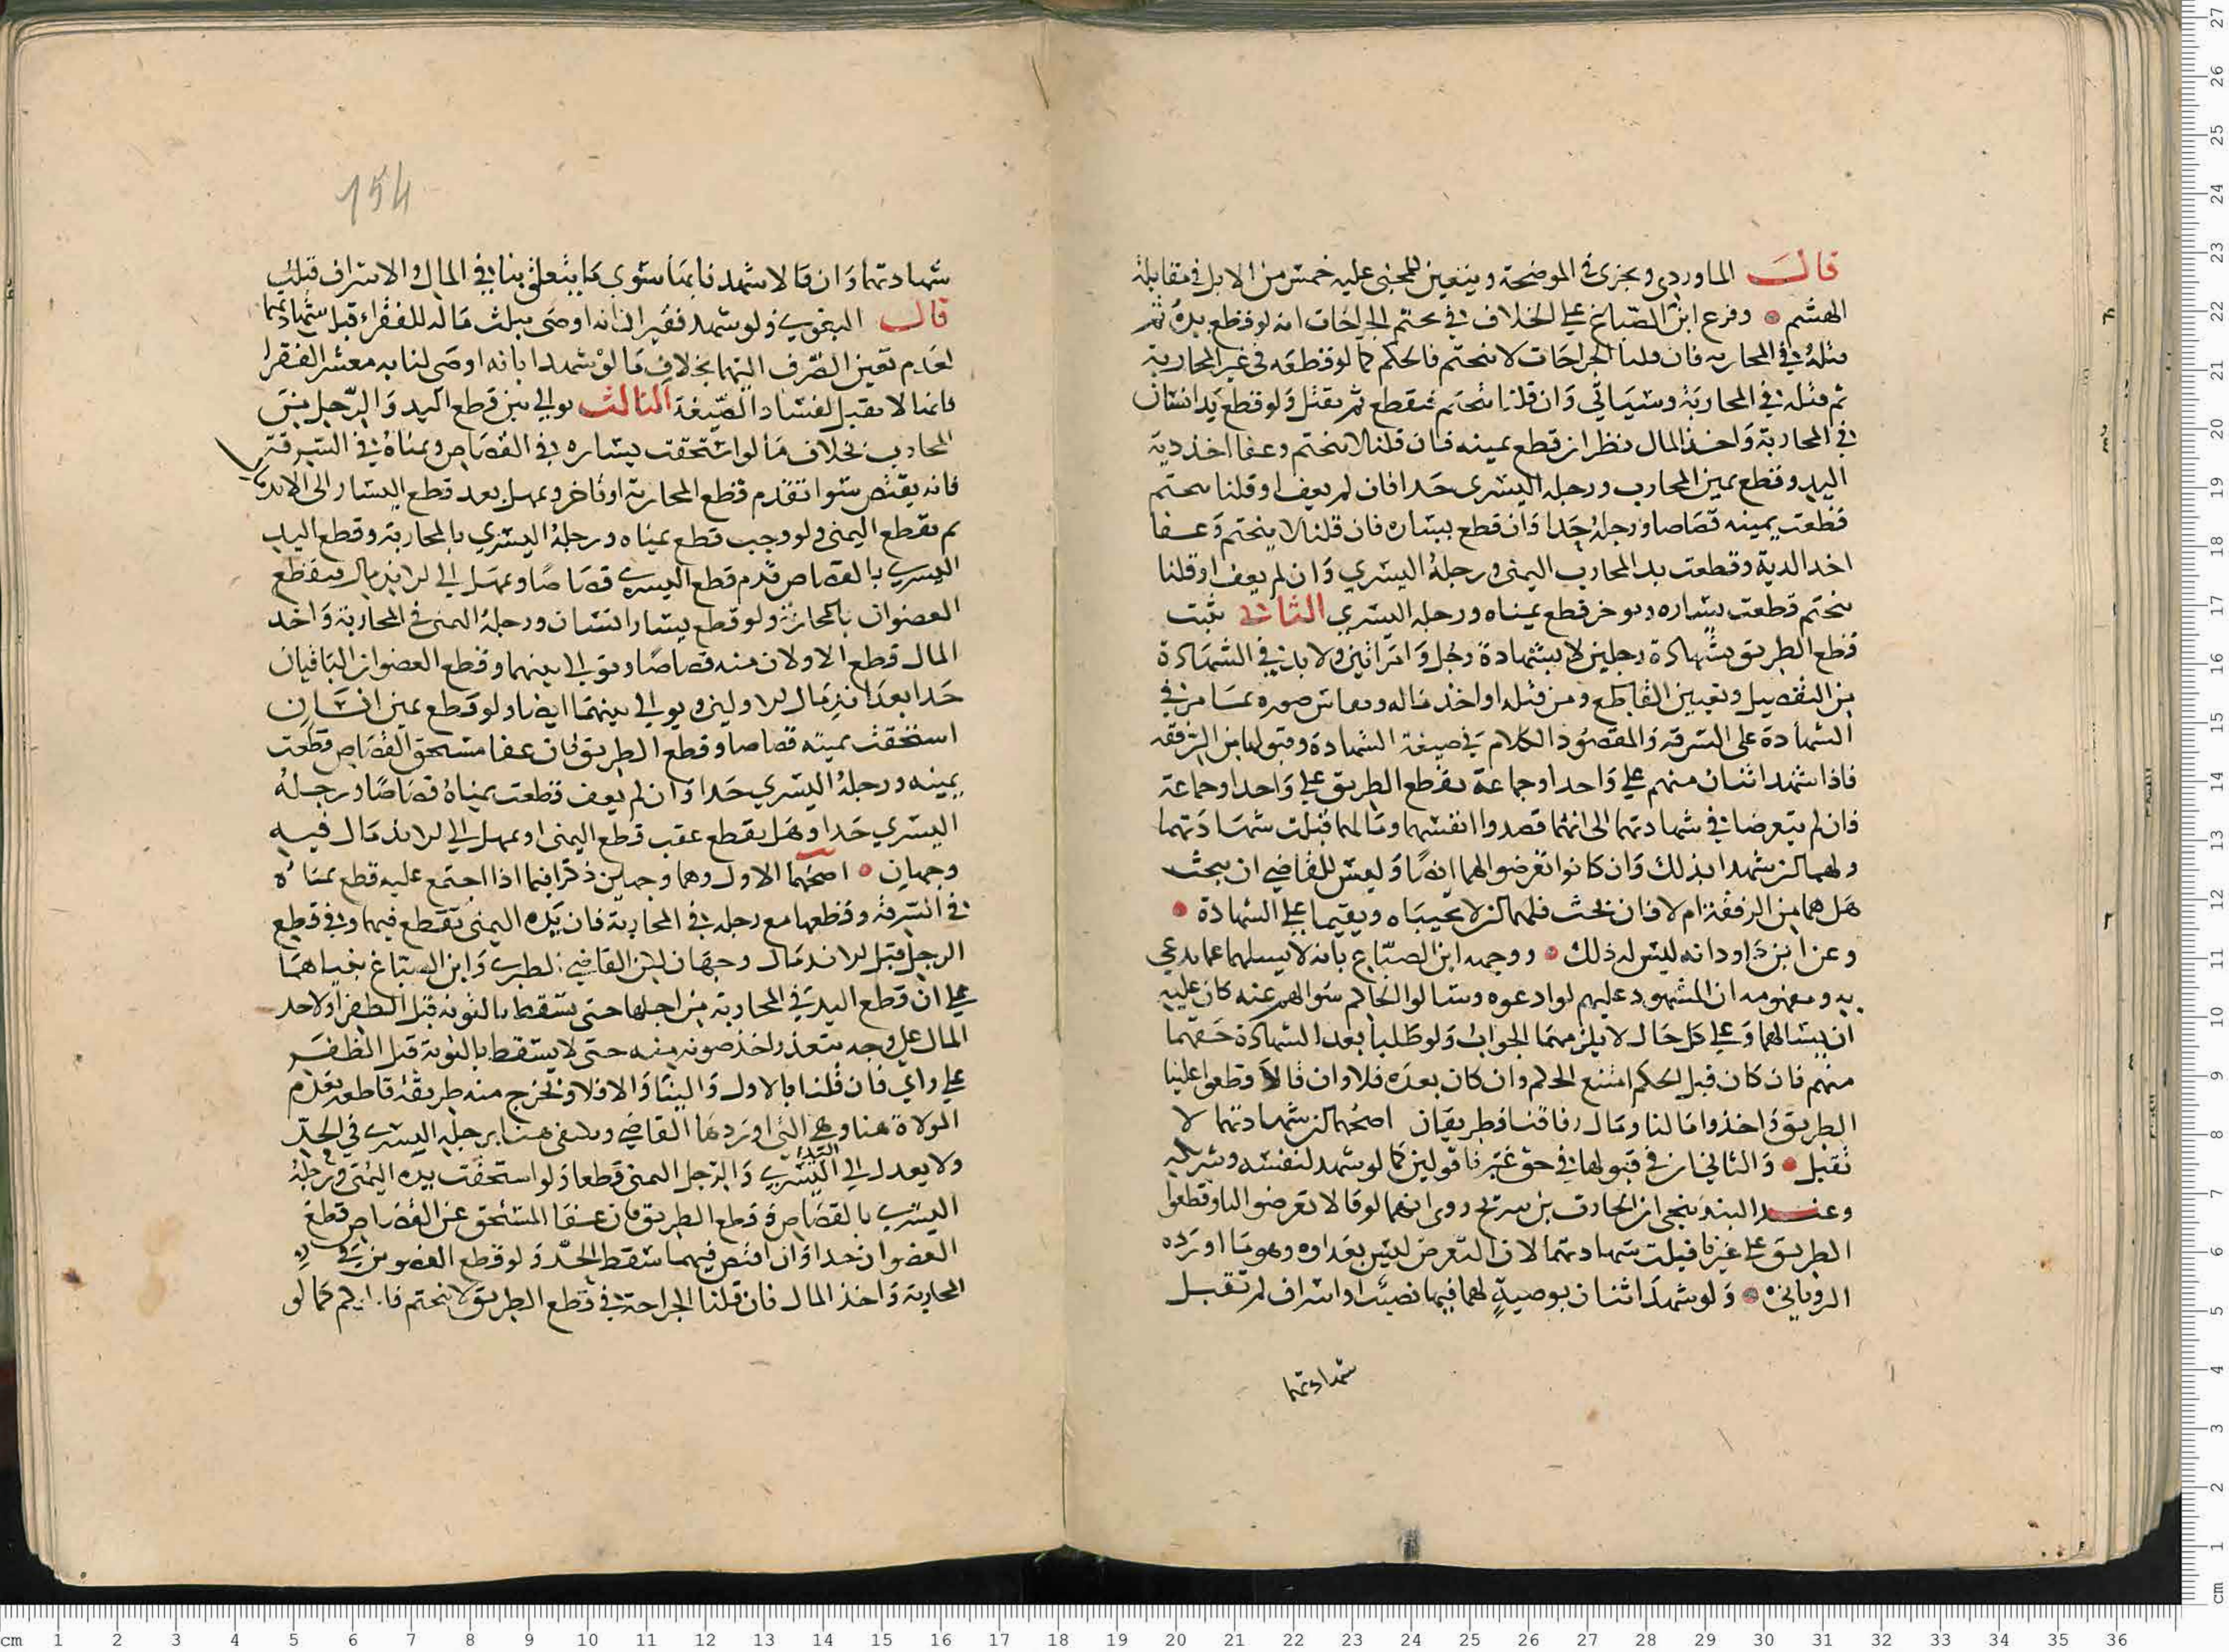 قال الماوردي ويجزى في الموضحة ويتعين للمجنى عليه خمس من الابل في مقابلة
الهشم وفرع ابن الصباغ على الخلاف في تحتم الجراحات انه لو قطع يده ثم
قتله في المحاربه فان قلنا الجراحات لا تتحتم فالحكم كما لو قطعه في غير المحاربة
ثم قتله في المحاربة وسياتي وان قلنا تتحتم فيقطع ثم يقتل ولو قطع يد انسان
في المحاربة واخذ المال نظر ان قطع يمينه فان قلنا لا يتحتم وعفا اخذ دية
اليد وقطع يمين المحارب ورجله اليسرى حدا فان لم يعف او قلنا يتحتم
قطعت يمينه قصاصا ورجله حدا وان قطع يساره فان قلنا لا يتحتم وعفا
اخد الدية وقطعت يد المحارب اليمنى ورجله اليسري وان لم يعف او قلنا
يتحتم قطعت يساره ويوخر قطع يمناه ورجله اليسري الثاني يثبت
قطع الطريق بشهادة رجلين لا بشهادة رجل وامراتين ولا بد في الشهادة
من التفصيل وتعيين القاطع ومن قتله او اخذ ماله صوره كما مر في
الشهادة على السرقة والمقصود الكلام في صيغة الشهادة وقبولها من الرفقه
فاذا شهد اثنان منهم على واحد او جماعة بقطع الطريق على واحد او جماعة
فان لم يتعرضا في شهادتهما الى انهما قصدوا انفسهما ومالهما قبلت شهادتهما
ولهما ان يشهدا بذلك وان كانوا تعرضوا لهما ايضا وليس للقاضي ان يبحث
هل هما من الرفقة ام لا فان بحث فلهما ان لا يجيباه ويقيما على الشهادة
وعن ابن داود انه ليس له ذلك ووجهه ابن الصباغ بانه لا يسلهما عما يدعي
به ومفهومه ان المشهود عليهم لو ادعوه وسالوا الحاكم سوالهم عنه كان عليه
ان يسالهما وعلى كل حال لا يلزمهما الجواب ولو طلبا بعد الشهادة حقهما
منهم فان كان قبل الحكم امتنع الحكم وان كان بعده فلا وان قالا قطعوا علينا
الطريق واخذوا مالنا ومال رفاقنا فطريقان اصحهما ان شهادتهما لا
تقبل والثاني ان في قبولها في حق غيرنا قولين كما لو شهد لنفسه وشريكه
وعند البندنيجي ان الحارث بن سريج روى انهما لو قالا تعرضوا لنا وقطعوا
الطريق على غيرنا قبلت شهادتهما لان التعرض ليس بعداوه وهو ما اورده
الروياني ولو شهد اثنان بوصية لهما فيها نصيب او اشراف لم تقبل
شهادتهما
154
شهادتهما وان قالا شهدنا بما سوى ما يتعلق بنا في المال والاشراف قبلت
قال البغوي ولو شهد فقيران انه اوصى بثلث ماله للفقراء قبل شهادتهما
لعدم تعين الصرف اليهما بخلاف ما لو شهدا بانه اوصى لنا به معشر الفقرا
فانها لا تقبل لفساد الصيغة الثالث يوالي بين قطع اليد والرجل من
المحارب بخلاف ما لو استحقت يساره في القصاص ويمناه في السرقة
فانه يقتص سوا تقدم قطع المحاربة او تاخر ويمهل بعد قطع اليسار الى الاندمال
ثم تقطع اليمنى ولو وجب قطع يمناه ورجله اليسري بالمحاربة وقطع اليد
اليسري بالقصاص قدم قطع اليسري قصاصا ويمهل الى الاندمال فيقطع
العضوان بالمحاربة ولو قطع يسار انسان ورجله اليمنى في المحاربة واخد
المال قطع الاولان منه قصاصا ويوالي بينهما وقطع العضوان الباقيان
حدا بعد اندمال الاولين ويوالي بينهما ايضا ولو قطع يمين انسان
استحقت يمينه قصاصا وقطع الطريق فان عفا مستحق القصاص قطعت
يمينه ورجله اليسري حدا وان لم يعف قطعت يمناه قصاصا ورجله
اليسري حدا وهل يقطع عقب قطع اليمنى او يمهل الى الاندمال فيه
وجهان اصحهما الاول وهما وجهان ذكرا فيما اذا اجتمع عليه قطع يمناه
في السرقة وقطعها مع رجله في المحاربة فان يده اليمنى تقطع فيهما وفي قطع
الرجل قبل الاندمال وجهان لكن القاضي الطبري وابن الصباغ بنياهما
على ان قطع اليد في المحاربة من اجلها حتى تسقط بالتوبة قبل الظفر او لاخذ
المال على وجه يتعذر اخذ صونه منه حتى لا يسقط بالتوبة قبل الظفر
على راي فان قلنا بالاول والينا والا فلا وتخرج منه طريقة قاطعة بعدم
الموالاة هنا وهي التي اوردها القاضي ويكتفى هنا برجله اليسرى في الحد
ولا يعدل الى اليد اليسري والرجل اليمنى قطعا ولو استحقت يده اليمنى ورجله
اليسرى بالقصاص وقطع الطريق فان عفا المستحق عن القصاص قطع
العضوان حدا وان اقتص فيهما سقط الحد ولو قطع العضوين في
المحاربة واخذ المال فان قلنا الجراحة في قطع الطريق لا تتحتم فالحكم كما لو